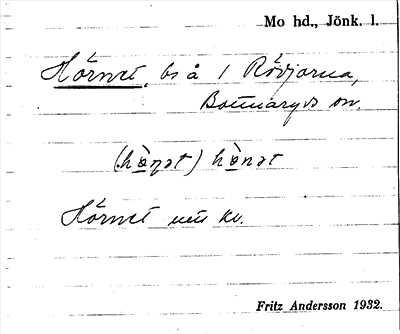 Mo hd., Jönk. l.
Hörnet, bs å 1 Rövjorna,
Bottnaryds sn.
(hö̀ṇət) hö̀nət
Hörnet
Fritz Andersson 1932.